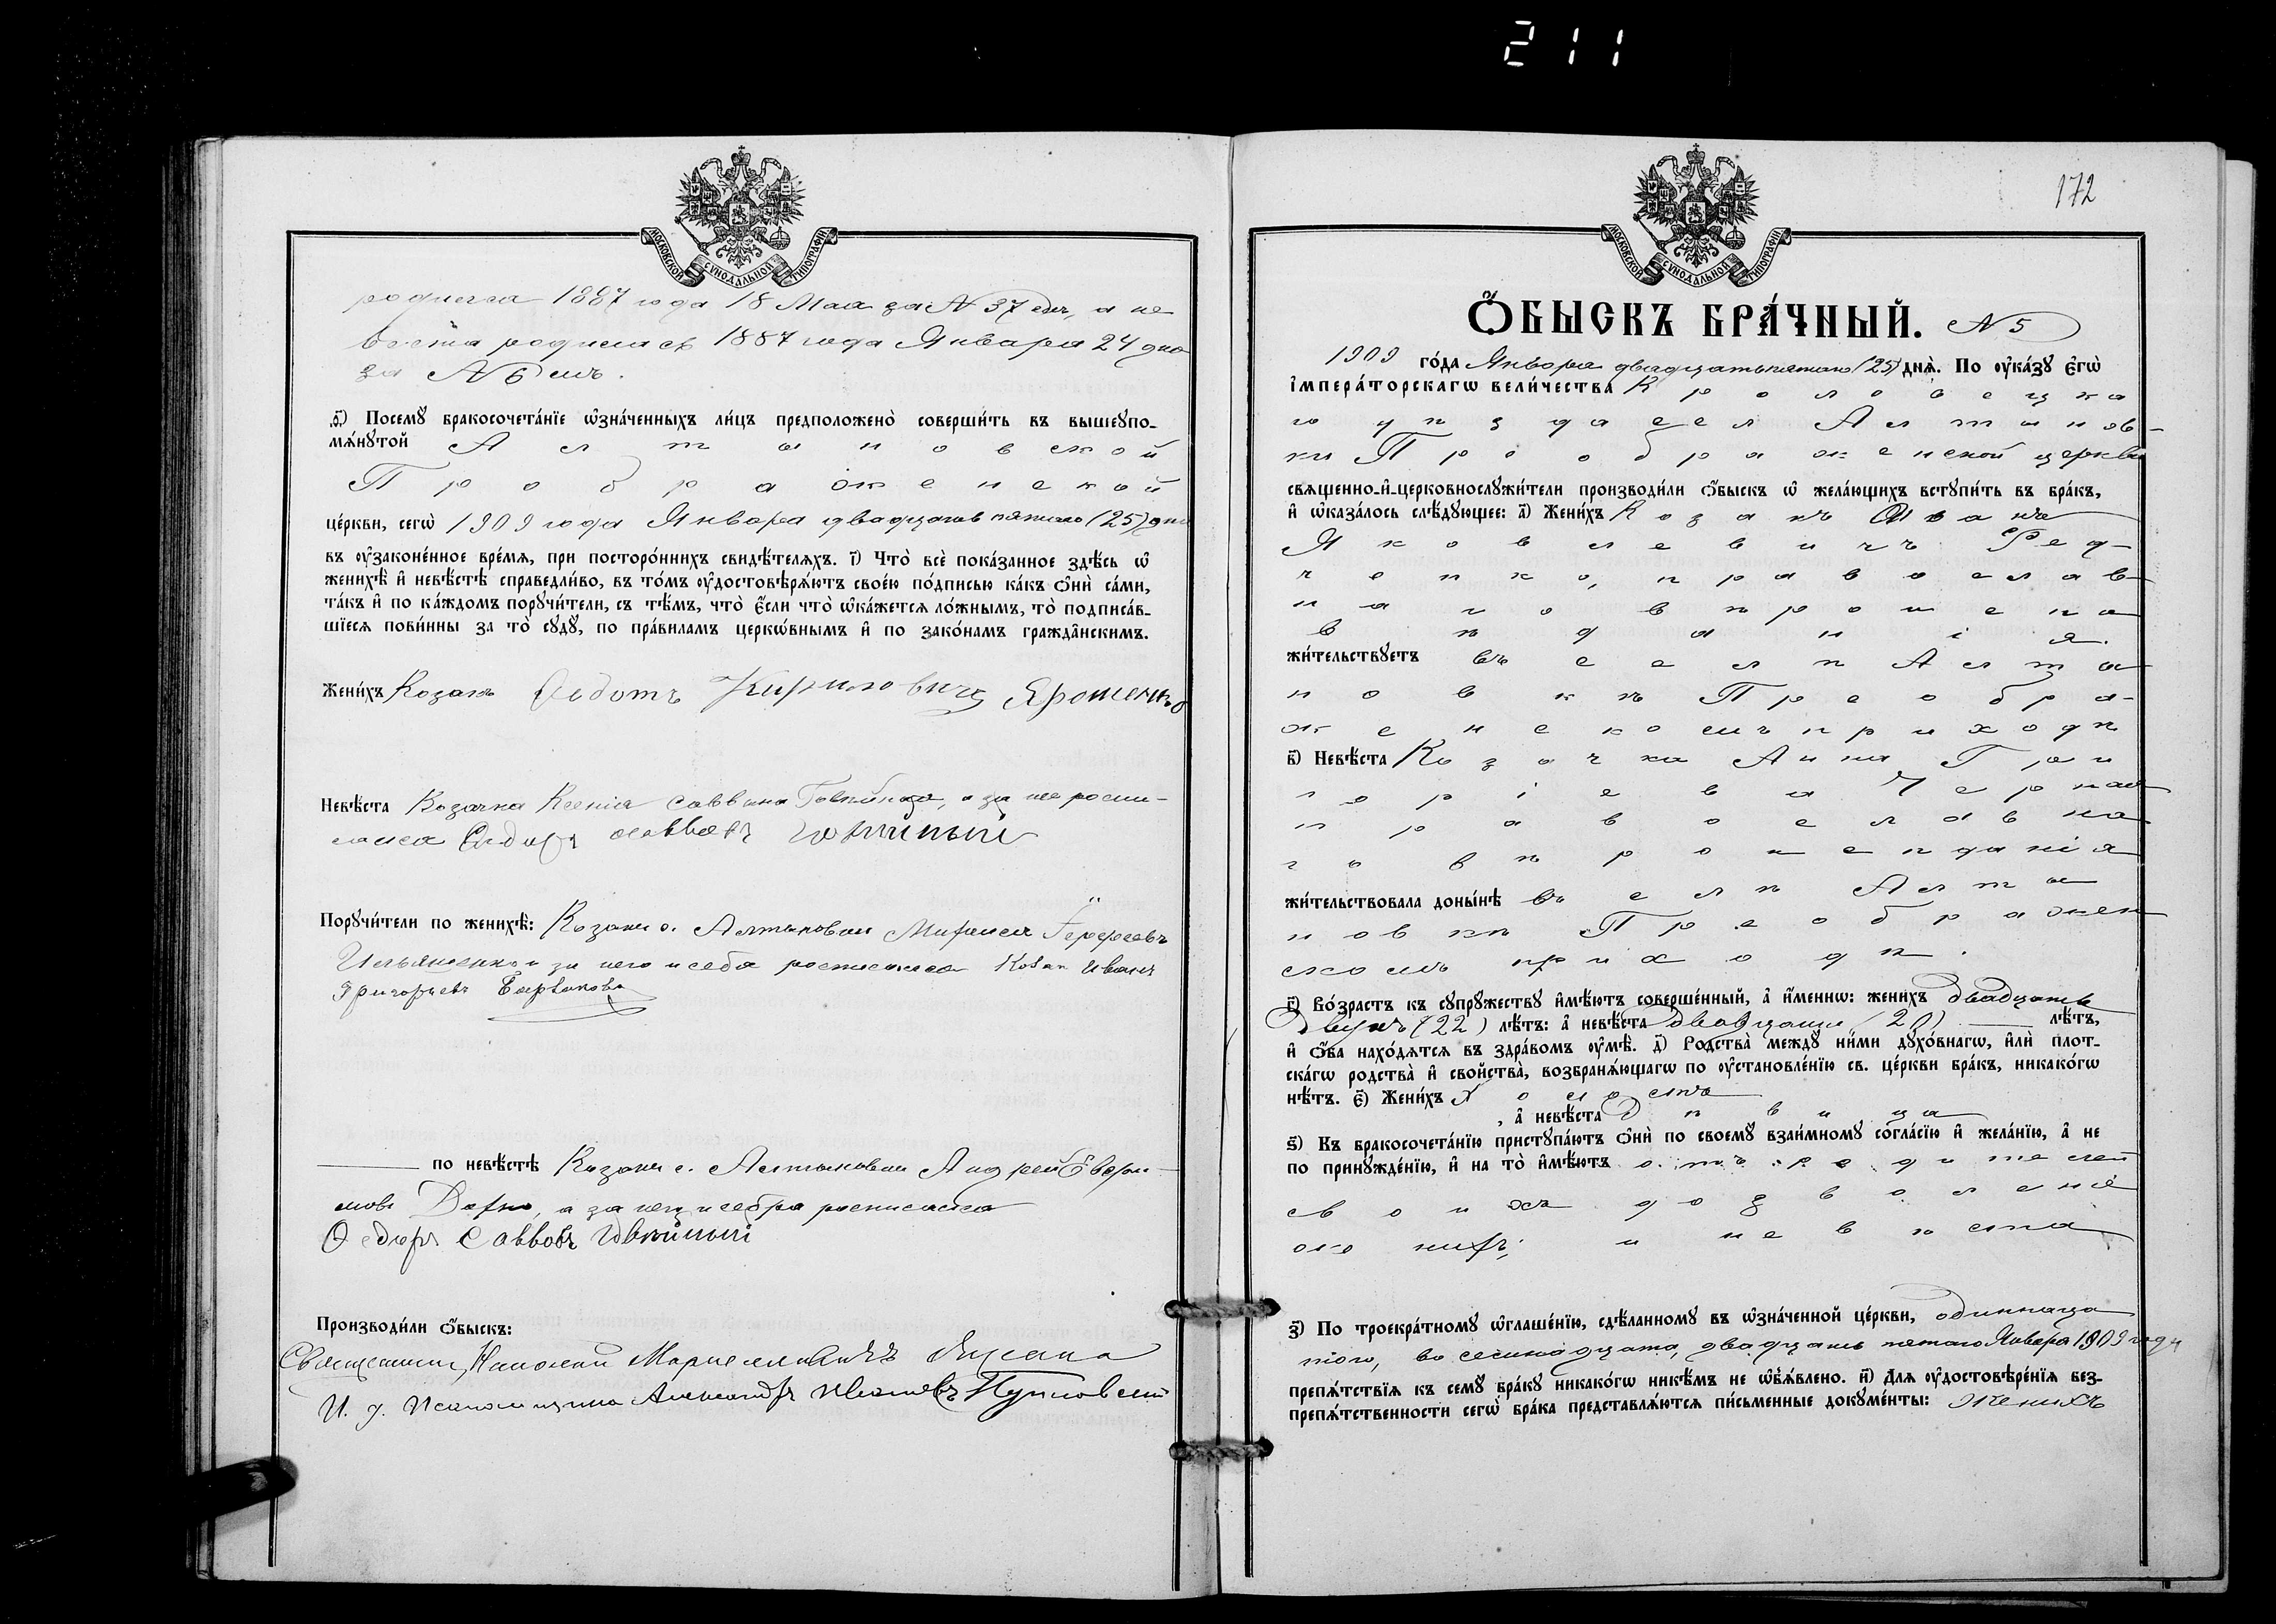 211
МОСКОВСКОЙ СѴНОДАЛЬНОЙ ТИПОГРАФІИ
родился 1887 года 18 Мая за N 37 емъ, а не
вѣста родилась 1887 года Января 24 дня
за N 6 мъ.
ѳ҃) Посемꙋ бракосочета́нїе ѡзна́ченныхъ ли́цъ предположено̀ соверши́ть въ вышеꙋпо-
мѧ́нꙋтой Алтыновской
Преображенской
це́ркви, сегѡ̀ 1909 года Января двадцать пятаго (25) дня
въ ᲂу҆законе́нное вре́мѧ, при посторо́ннихъ свидѣ́телѧхъ. і҃) Что̀ всѐ пока́занное здѣ́сь ѡ҆
женихѣ̀ и҆ невѣ́стѣ справедли́во, въ то́мъ ᲂу҆достовѣрѧ́ютъ свое́ю по́дписью ка́къ ѻ҆нѝ са́ми,
та́къ и҆ по ка́ждомъ порꙋчи́тели, съ тѣ́мъ, что̀ є҆́сли что̀ ѡ҆ка́жетсѧ ло́жнымъ, то̀ подписа́в-
шїесѧ пови́нны за то̀ сꙋдꙋ̀, по пра́виламъ церкѡ́внымъ и҆ по зако́намъ гражда̑нскимъ.
Жени́хъ Козакъ Ѳедотъ Кириловичъ Ярошенко
Невѣ́ста Козачка Ксенія Саввина, а за нее роспи-
сался Ѳедоръ Саввовъ
Порꙋчи́тели по женихѣ̀: Козаки с. Алтыновки
Ильяшенко и за него и себя росписался Козак Иванъ
Григорьевъ
по невѣ́стѣ Козаки с. Алтыновки Андрей Евфи-
мовъ, а за него и себя росписался
Ѳедоръ Саввовъ
Производи́ли ѻ҆́быскъ:
Священникъ
И. д. псаломщика Александръ
172
МОСКОВСКОЙ СѴНОДАЛЬНОЙ ТИПОГРАФІИ
Ѻ҆́БЫСКЪ БРА́ЧНЫЙ. N 5
1909 го́да Января двадцать пятаго (25) днѧ̀. По ᲂу҆ка́зꙋ є҆гѡ̀
і҆мпера́торскагѡ вели́чества Кролевецка
го уѣзда сел Алтынов-
ки Преображенской церкви
свѧщенно-и҆-церковнослꙋжи́тели производи́ли ѻ҆́быскъ ѡ҆ жела́ющихъ встꙋпи́ть въ бра́къ,
и҆ ѡ҆каза́лось слѣ́дꙋющее: а҃) Жени́хъ Козакъ Иванъ
Яковлевичъ Ред-
ченко, православ-
наго вѣроиспо
вѣданія.
жи́тельствꙋетъ въ селѣ Алты
новкѣ Преобра-
женскомъ приходѣ
в҃) Невѣ́ста Козачка Анна Гри
горіева
православна
го вѣроисповѣданія
жи́тельствовала доны́нѣ въ селѣ Алты
новкѣ Преображен
скомъ приходѣ.
г҃) Во́зрастъ къ сꙋпрꙋжествꙋ и҆мѣ́ютъ соверше́нный, а҆ и҆́меннѡ: жени́хъ двадцать
двухъ (22) лѣ́тъ: а҆ невѣ́ста двадцати (20) лѣ́тъ,
и҆ ѻ҆́ба нахо́дѧтсѧ въ здра́вомъ ᲂу҆мѣ̀. д҃) Родства̀ междꙋ̀ ни́ми дꙋхо́внагѡ, и҆лѝ пло́т-
ска́гѡ родства̀ и҆ свойства̀, возбранѧ́ющагѡ по ᲂу҆становле́нїю св. це́ркви бра́къ, никако́гѡ
нѣ́тъ. є҃) Жени́хъ Холостъ
, а҆ невѣ́ста Дѣвица
ѕ҃) Къ бракосочета́нїю пристꙋпа́ютъ ѻ҆нѝ по своемꙋ̀ взаи́мномꙋ согла́сїю и҆ жела́нїю, а҆ не
по принꙋжде́нїю, и҆ на то̀ и҆мѣ́ютъ отъ родителей
своихъ дозволеніе
женихъ и невѣста
з҃) По троекра́тномꙋ ѡ҆глаше́нїю, сдѣ́ланномꙋ въ ѡ҆зна́ченной це́ркви, одиннадца
таго, восемнадцата, двадцать пятаго Января 1909 года
препѧ́тствїѧ къ семꙋ̀ бра́кꙋ никако́гѡ никѣ́мъ не ѡ҆б̾ѧ́влено. и҃) Длѧ ᲂу҆достовѣре́нїѧ без-
препѧ́тственности сегѡ̀ бра́ка представлѧ́ютсѧ пи́сьменные докꙋме́нты: Женихъ